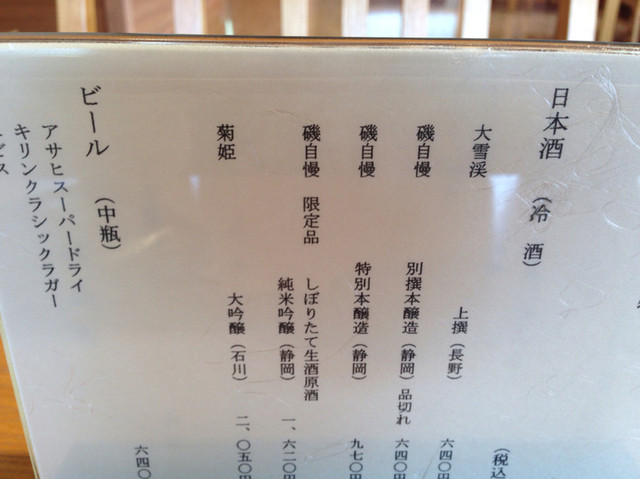 日本酒 (冷 酒)
(税込
大雪渓 上撰(長野) 六四〇円
磯自慢 別撰本醸造(静岡)品切れ 六四〇円
磯自慢 特別本醸造(静岡) 九七〇円
磯自慢 限定品 しぼりたて生酒原酒
純米吟醸(静岡) 一、六二〇円
菊姫 大吟醸(石川) 二、〇五〇円
ビール (中瓶) 六四〇
アサヒスーパードライ
キリンクラシックラガー
ビス